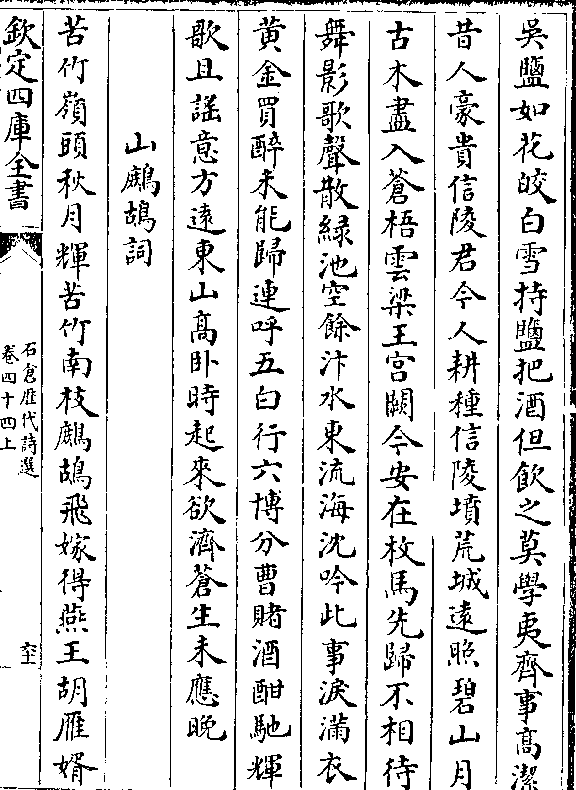 吳鹽如花皎白雪持鹽把酒但飲之莫學夷齊事髙潔
昔人豪貴信陵君今人耕種信陵墳荒城遠照碧山月
古木盡入蒼梧雲梁王宫闕今安在枚馬先歸不相待
舞影歌聲散緑池空餘汴水東流海沈吟此事淚滿衣
黄金買醉未能歸連呼五白行六博分曹賭酒酣馳輝
歌且謡意方逺東山髙卧時起來欲濟蒼生未應晚
山鷓鴣詞
苦竹嶺頭秋月輝苦竹南枝鷓鴣飛嫁得燕王胡雁婿
欽定四庫全書
石倉歴代詩選
卷四十四上